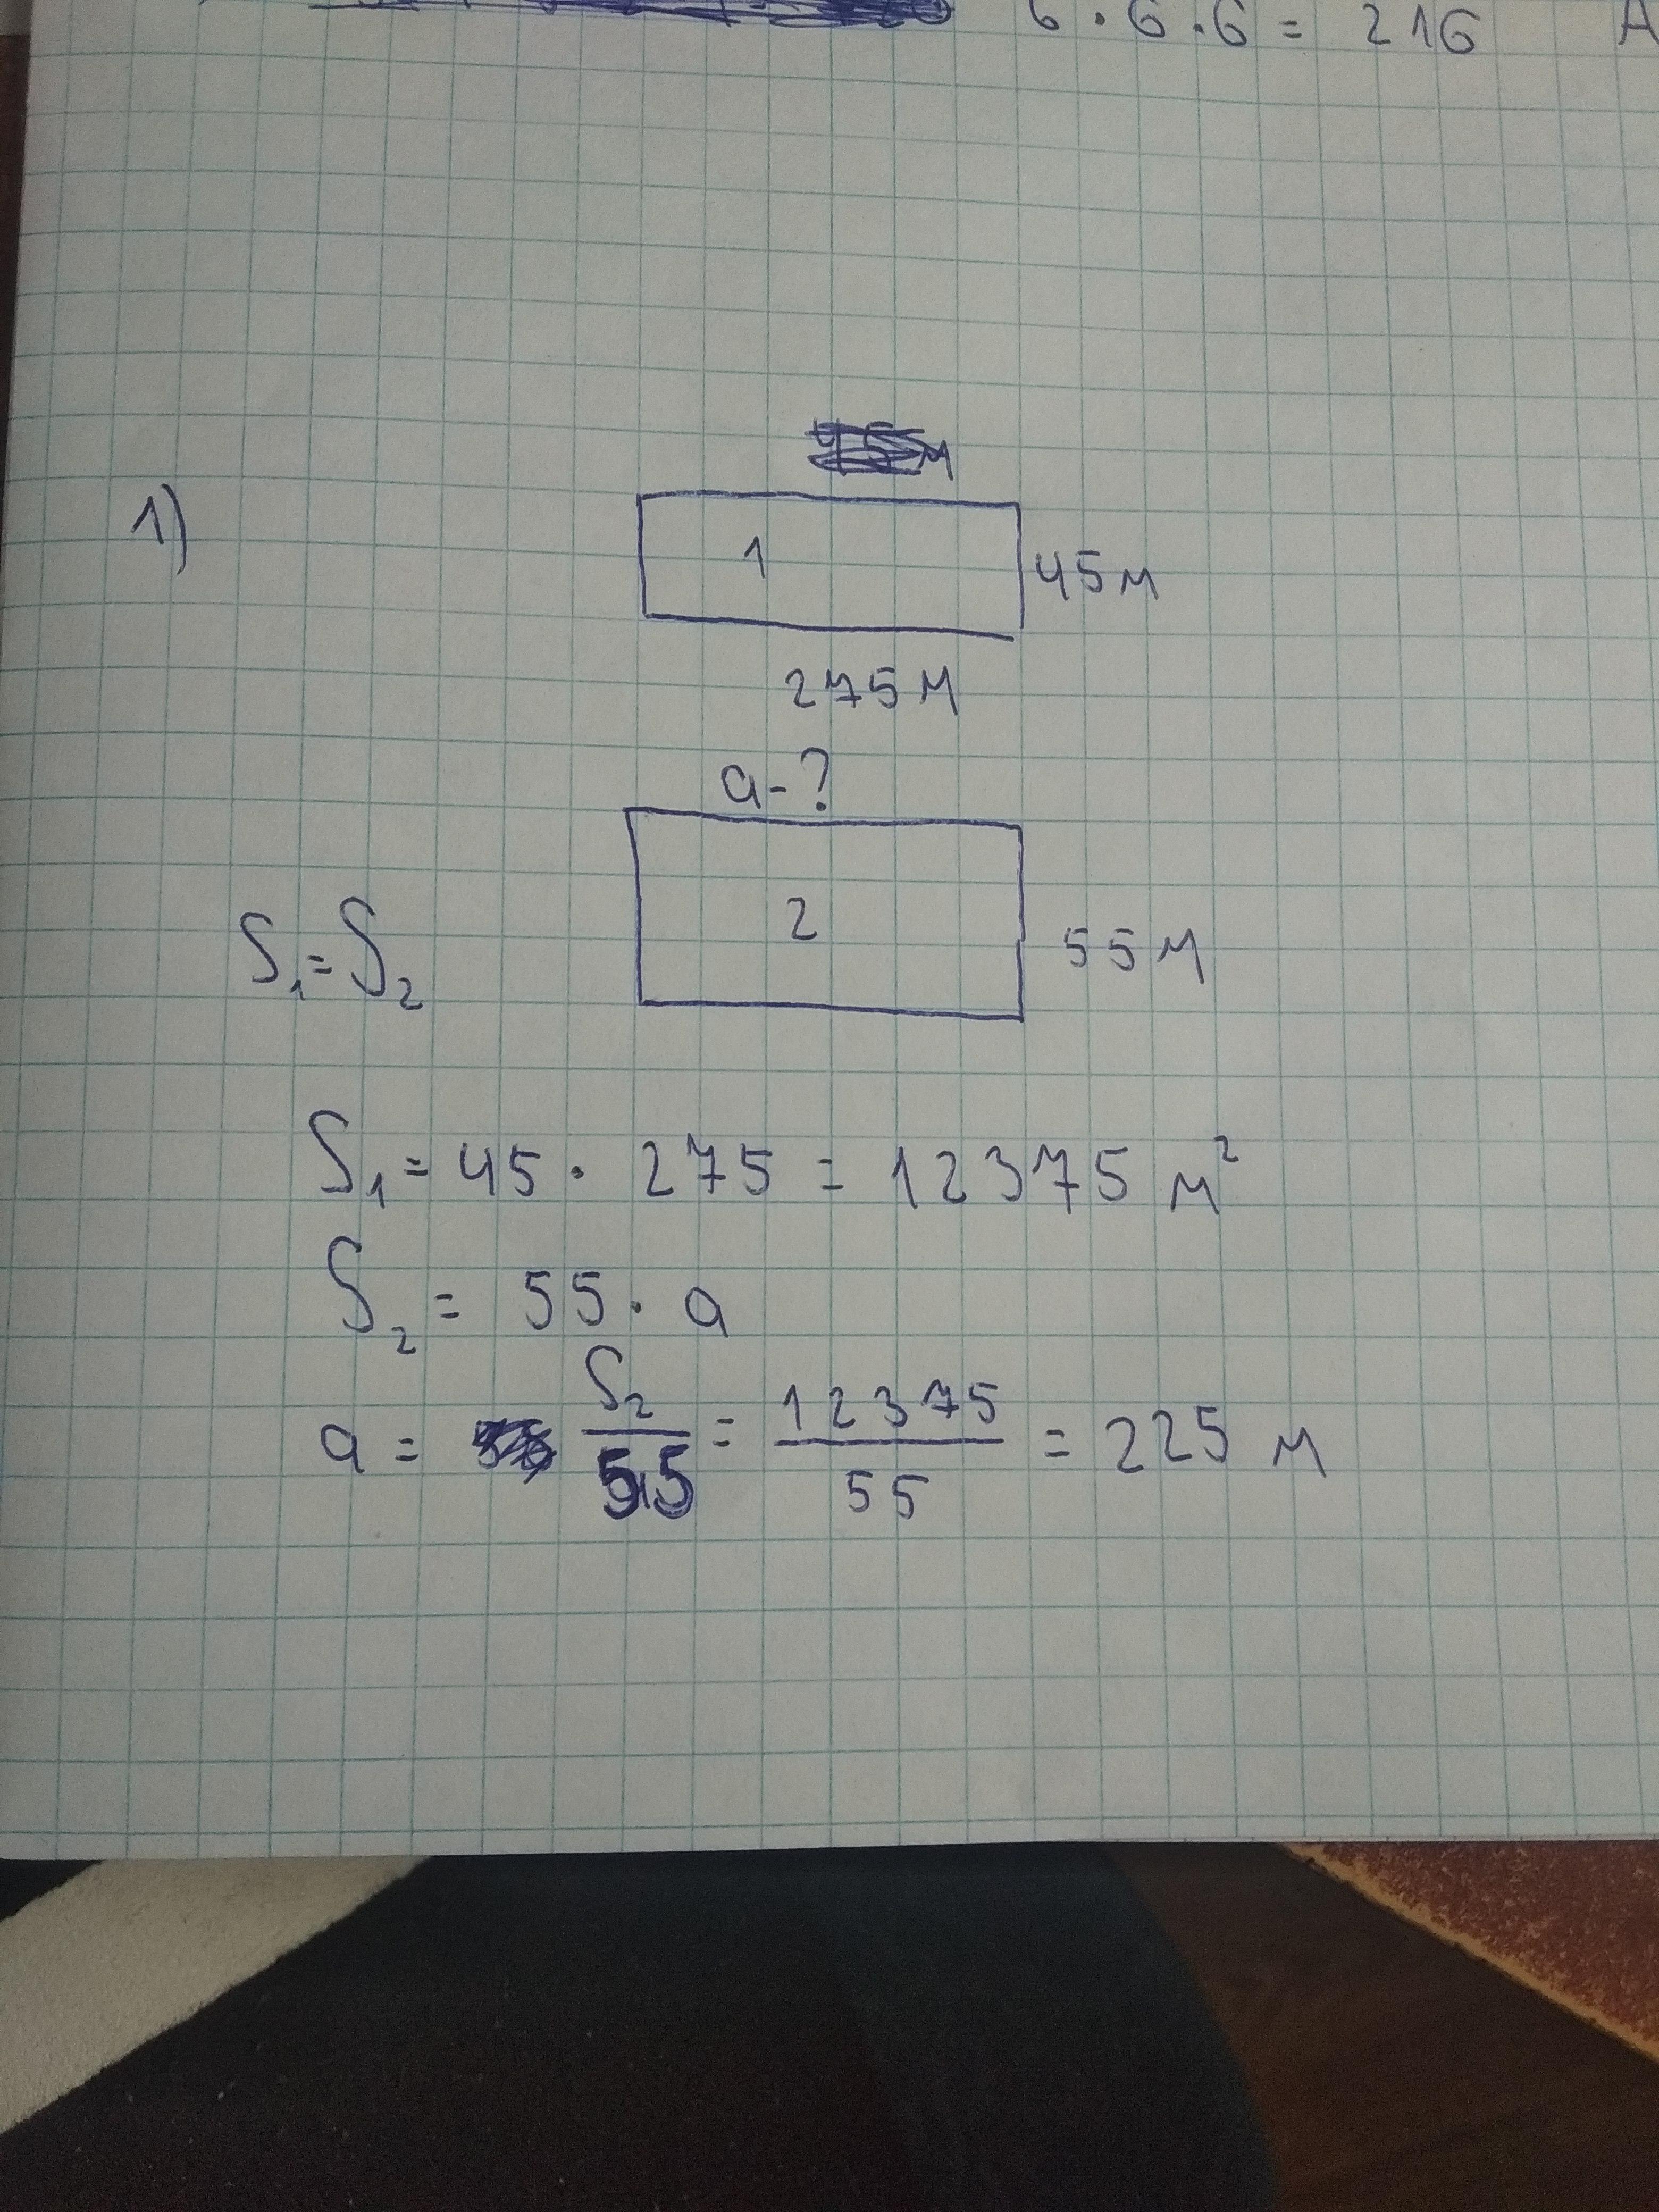 6 · 6 · 6 = 216 А
1)
1
45м
275м
a-?
2
55м
S₁=S₂
S₁ = 45 · 275 = 12375 м²
S₂ = 55 · a
a = S₂/55 = 12375/55 = 225 м